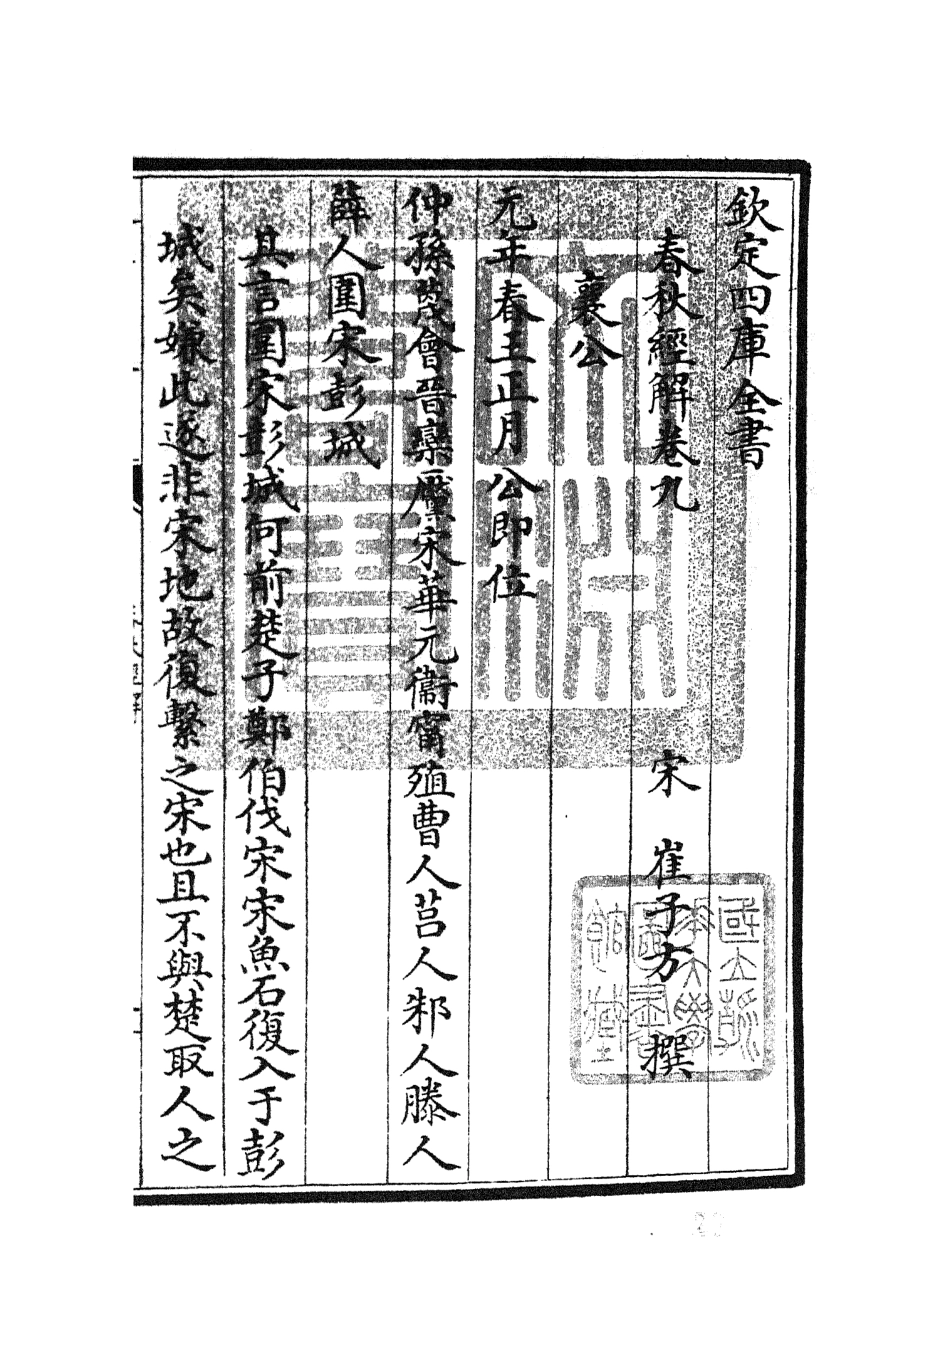 欽定四庫全書
春秋經解卷九
宋 崔子方 撰
襄公
元年春王正月公即位
仲孫蔑會晉欒黶宋華元衞甯殖曹人莒人邾人滕人
薛人圍宋彭城
其言圍宋彭城何前楚子鄭伯伐宋宋魚石復入于彭
城矣嫌此遂非宋地故復繫之宋也且不與楚取人之